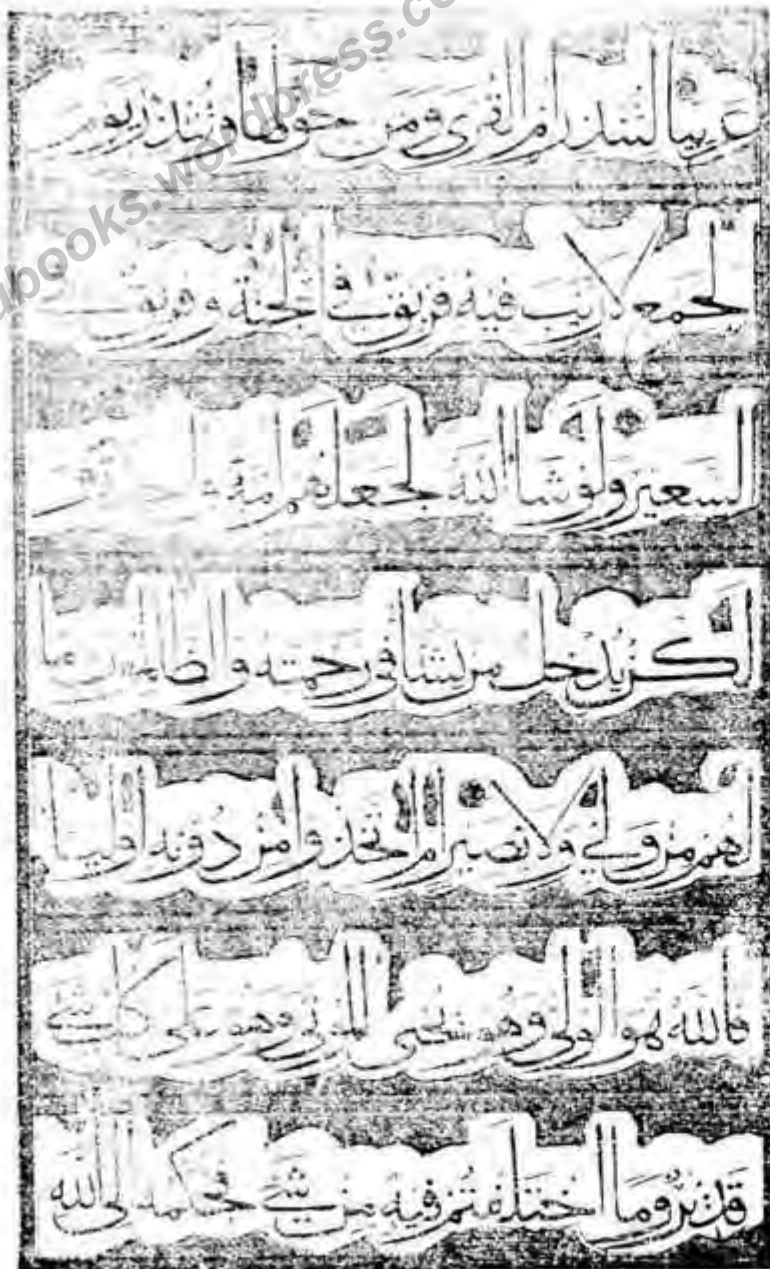 عربيا لتنذر ام القرى ومن حولها وتنذر يوم
الجمع لا ريب فيه فريق في الجنة وفريق في
السعير ولو شاء الله لجعلهم امة
ولكن يدخل من يشا في رحمته والظالمون ما
لهم من ولي ولا نصير ام اتخذوا من دونه اوليا
فالله هو الولي وهو يحيي الموتى وهو على كل شيء
قدير وما اختلفتم فيه من شيء فحكمه الى الله
books.wordpress.co